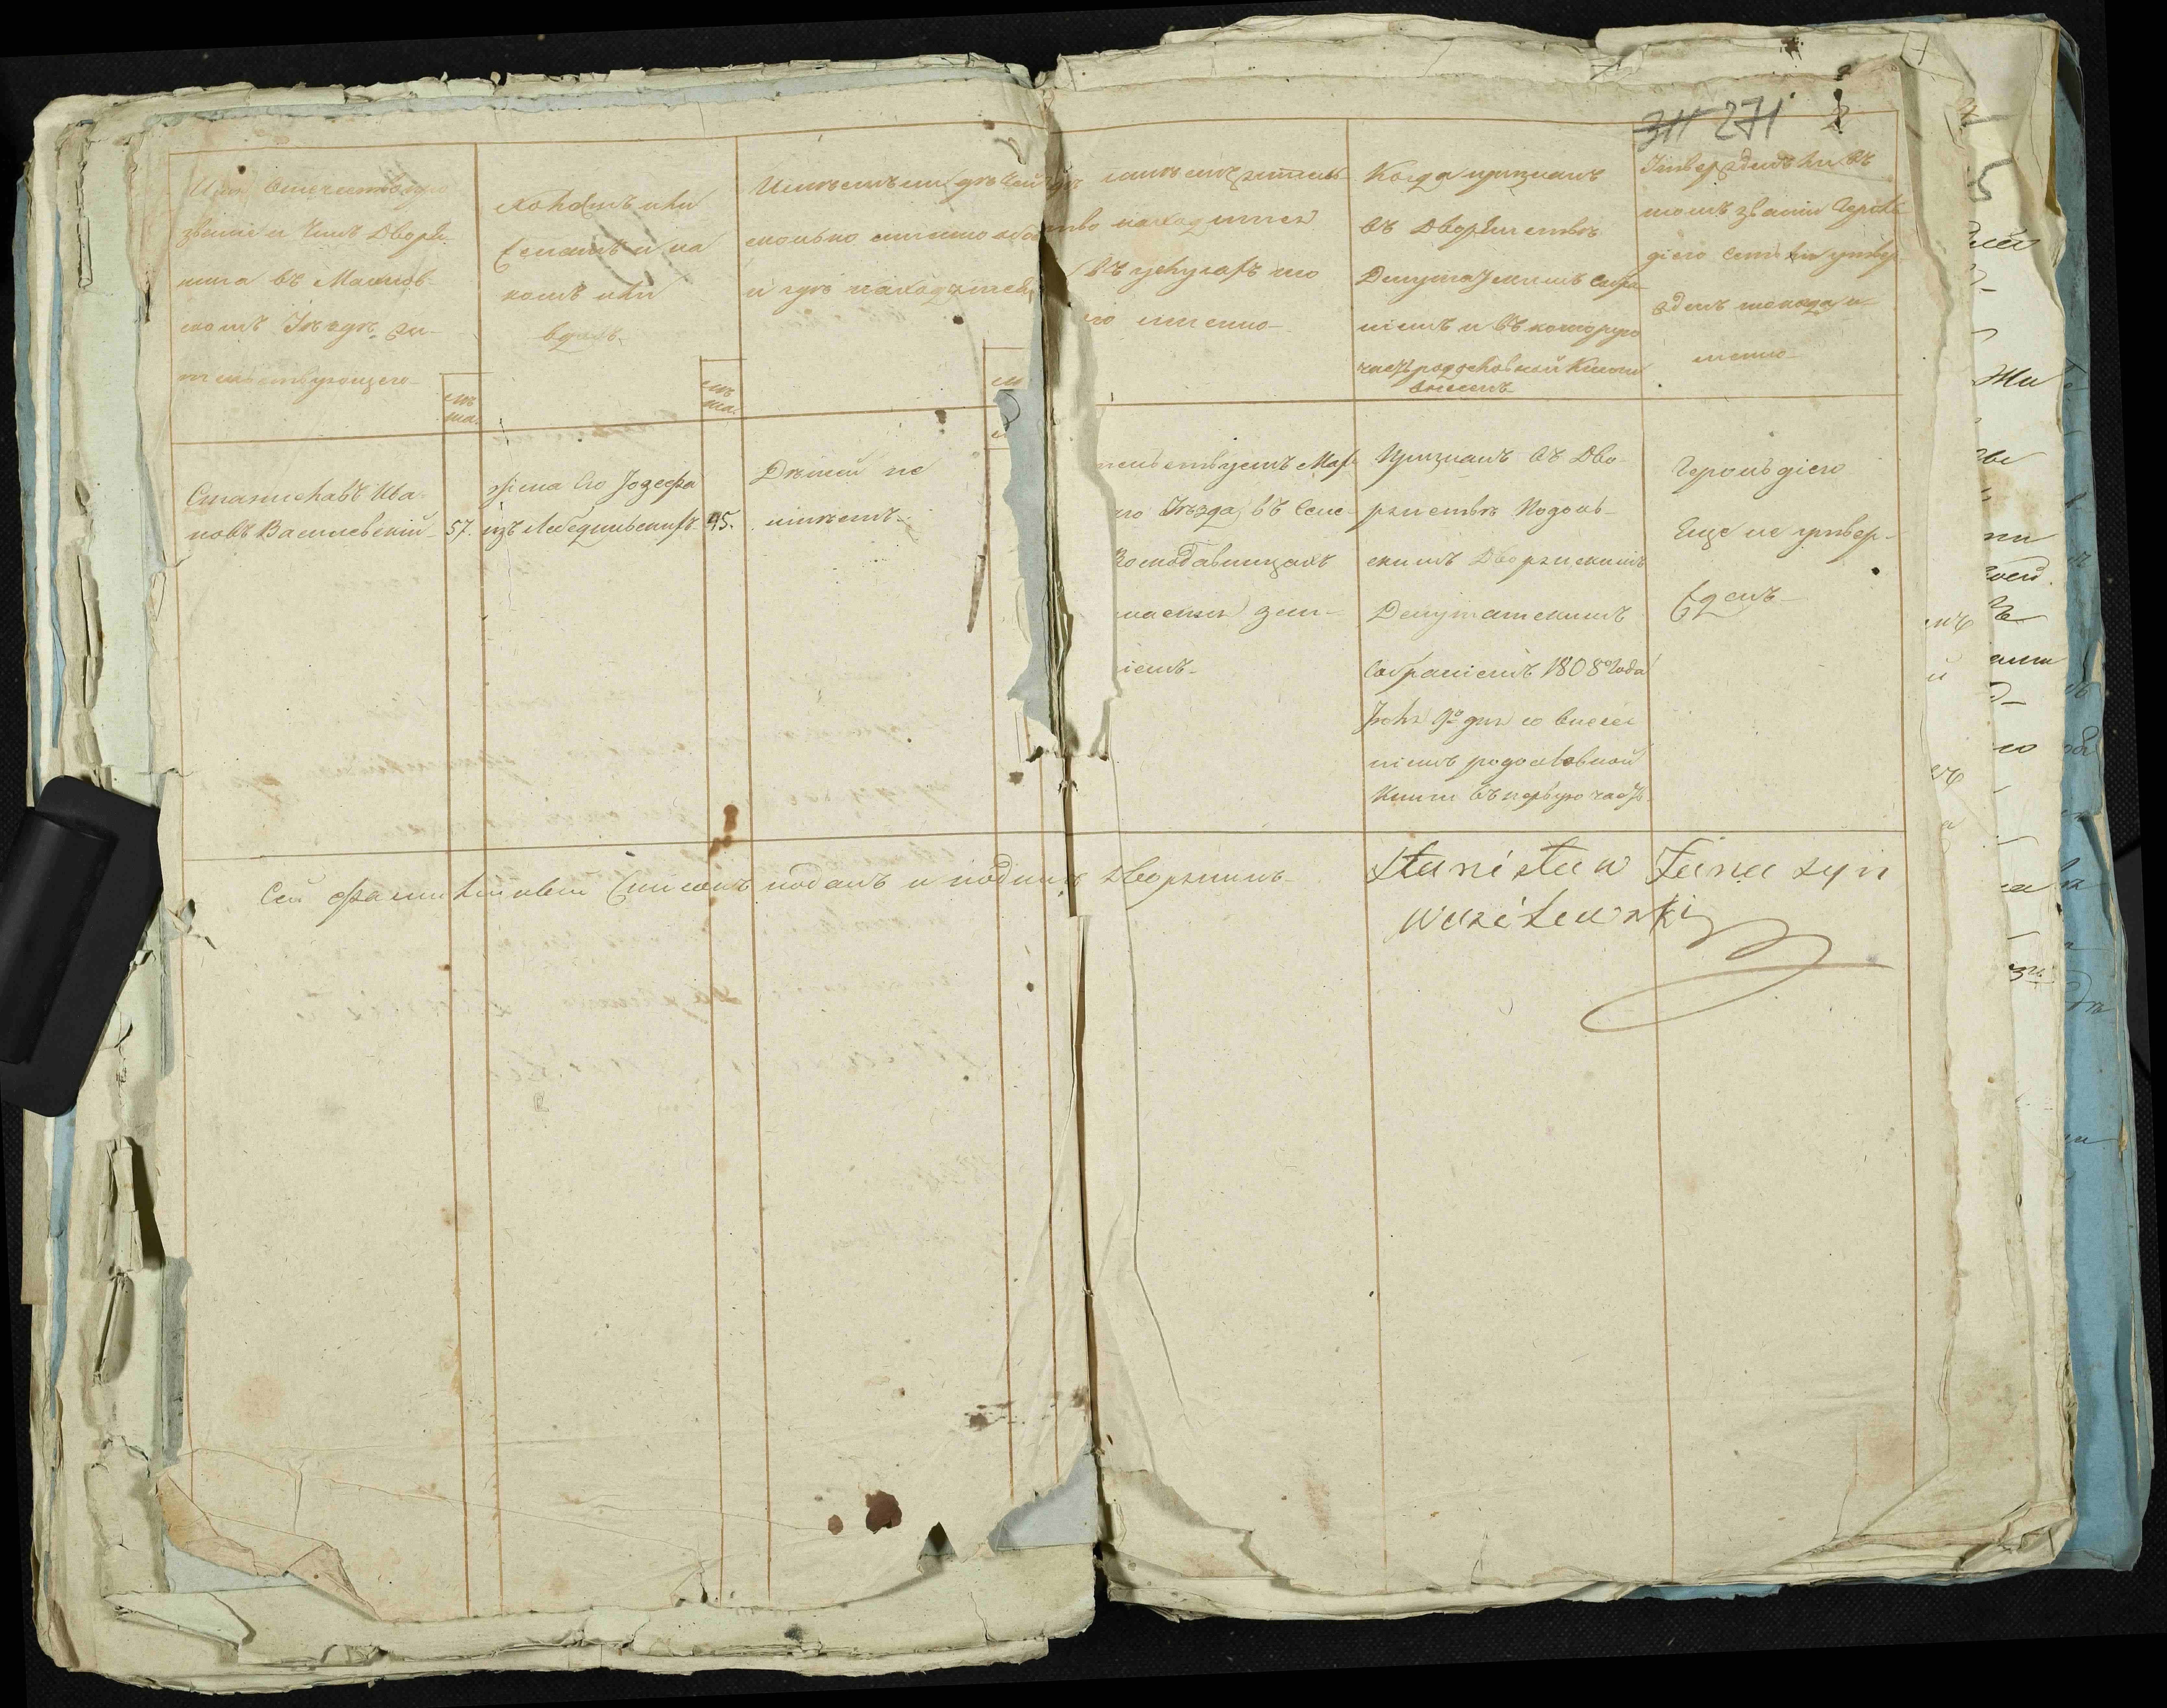 311 271
Имя Отечество про
звание и Чинъ Дворя-
нина въ Махнов-
комъ Уѣздѣ жи-
тельствующего
лѣ
та.
Холостъ или
Женатъ и на
комъ или
вдовъ
лѣ
та.
Имѣетъ ли дѣтей
сколько именно
и где находятся
гдѣ имѣетъ житель
ство находится
въ услугахъ
го именно
Когда признанъ
въ Дворянствѣ
Депутатскимъ Собра-
ніемъ и въ которую
часть родословной Книги
внесенъ
Утвержденъ ли въ
томъ званіи Героль-
діею естьли утвер-
жденъ то когда и-
менно
Станиславъ Ива-
новъ Василевский 57.
жена его Іозефа
изъ Лебединскихъ 45.
Дѣтей не
имѣетъ
тельствуетъ Мах-
го Уѣзда въ Селе-
ніемъ
Признанъ въ Дво-
рянствѣ Подоль-
скимъ Дворянскимъ
Депутатскимъ
Собраніемъ 1808 года
Іюля 9о дня со внесе
ніемъ родословной
Книги въ первую часть.
Герольдіею
Еще не утвер-
жденъ
Сей фамилійный Списокъ подалъ и подписалъ Дворянинъ
Stanisław Jana syn
Wasilewski